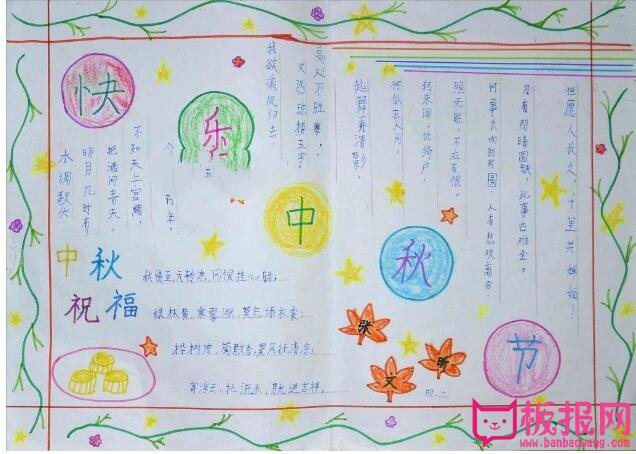 快
乐
中
秋
节
水调歌头
明月几时有，
把酒问青天，
不知天上宫阙，
年。
我欲乘风归去，
又恐琼楼玉宇，
高处不胜寒，
起舞弄清影，
何似在人间。
转朱阁，低绮户，
照无眠，不应有恨，
何事长向别时圆，人有悲欢离合，
月有阴晴圆缺，此事古难全。
但愿人长久，千里共婵娟！
中秋
祝福
天转凉,问候挂心肠;
绿林黄,寒露涨,莫忘添衣裳;
桦树茫,菊散香,晨风抚清凉;
寄浮云,托流水,送吉祥。
张
文
昕
四.二
板报网
www.banbaowang.com